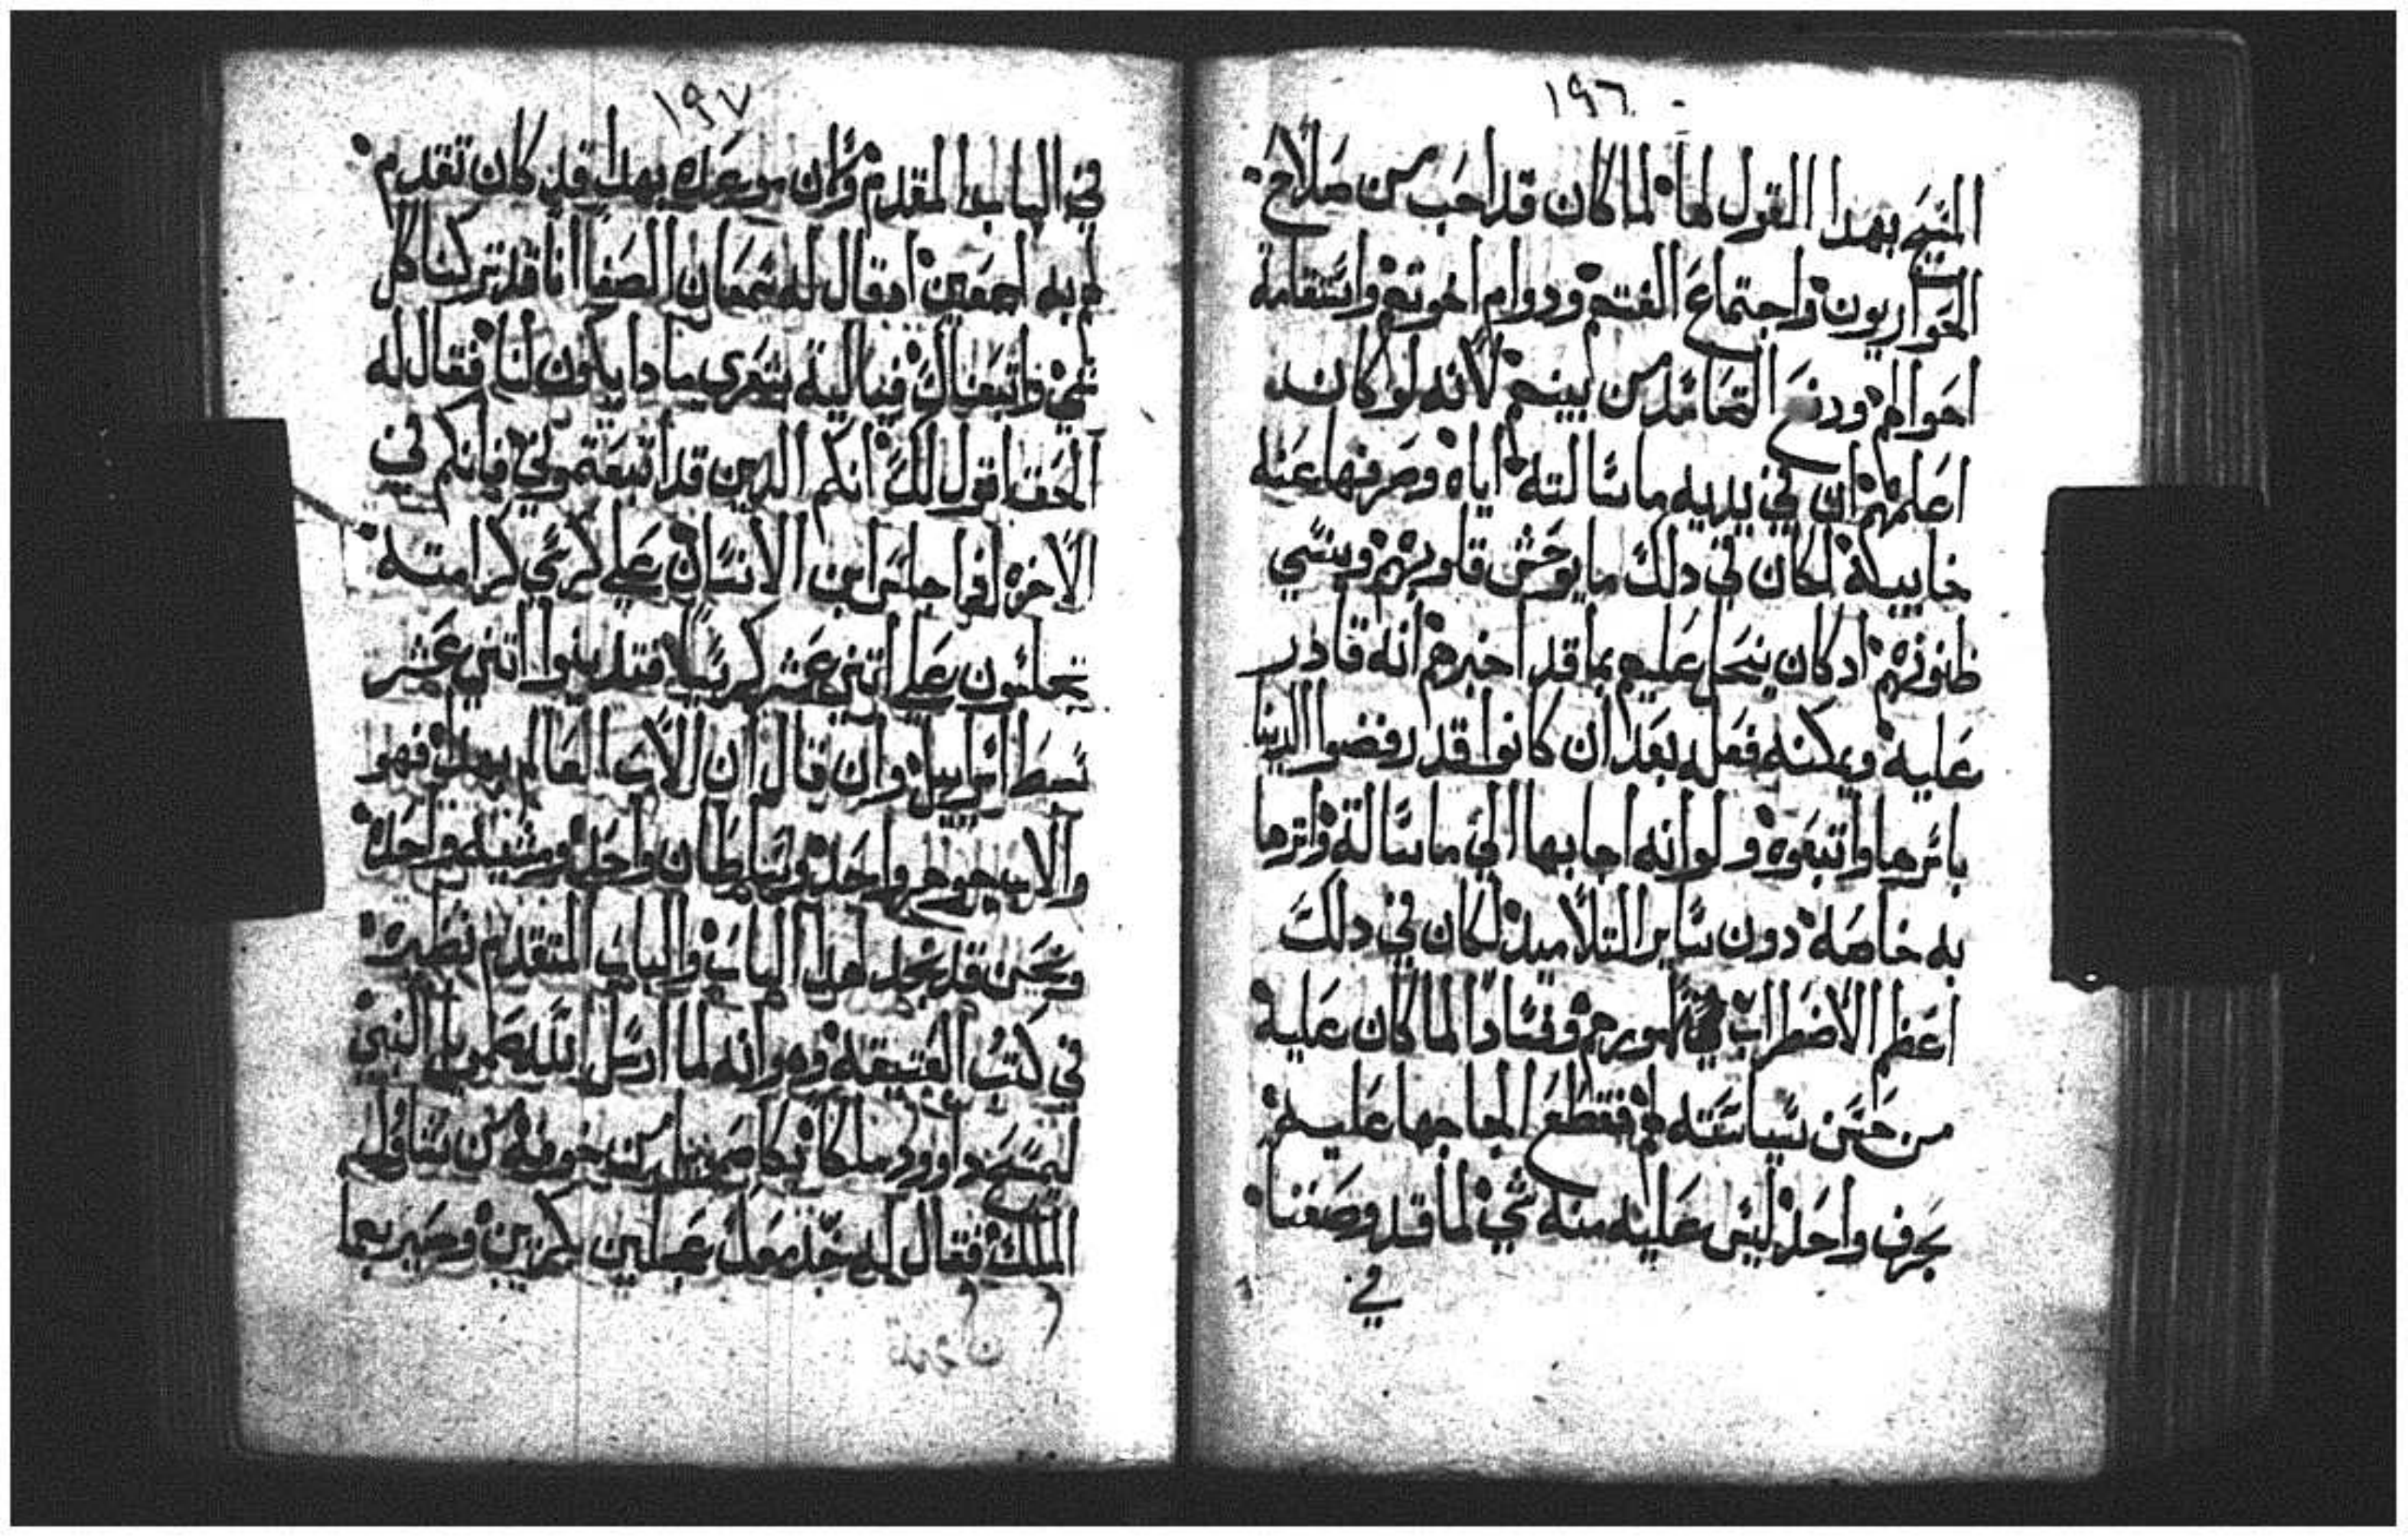 ١٩٦
المسيح بهدا القول لها لما كان قد احب من صلاح
الحواريون واجتماع الفتهم ودوام اخوتهم واستقامة
احوالهم ودفع التحاسد من بينهم لانه لو كان
اعلمهم ان في يديه ما سالته اياه وصرفها عنه
خايبة لكان في دلك ما يوحش قلوبهم وينسي
ظنونهم اد كان يبخل عليهم بما قد اخبرهم انه قادر
عليه ويمكنه فعله بعد ان كانوا قد رفضوا الدنيا
باسرها واتبعوه ولو انه اجابها الي ما سالته واثرها
به خاصه دون ساير التلاميد لكان في دلك
اعظم الاضطراب امورهم وفسادا لما كان عليه
من حسن سياسته لهم فقطع الجاجها عليه
بحرف واحد ليس عليه منه شي لما قد وصفنا
في
١٩٧
في الباب المقدم وان موعده بهدا قد كان تقدم
لهم به اجمعين اد قال له شمعان الصفا انا قد تركنا كل
شي واتبعناك فياليت شعري مادا يكون لنا فقال له
الحق اقول لك انكم الدين قد اتبعتموني فانكم في
الاخره ادا جلس ابن الانسان علي كرسي كرامته
تجلسون علي اتني عشر كرسيا فتدينوا اتني عشر
سبط اسراييل وان قال ان الاب العالم بهدا فهو
والاب جوهر واحد وسلطان واحد ومشيه واحده
ونحن قد نجد لهدا الباب والباب المتقدم نظيره
في كتب العتيقه وهو انه لما ارسل الله صمويل النبي
ليمسح داوود ملكا شكا صمويل من خوفه من شاول
الملك فقال له خد معك عجلين بكرين وصير بهما